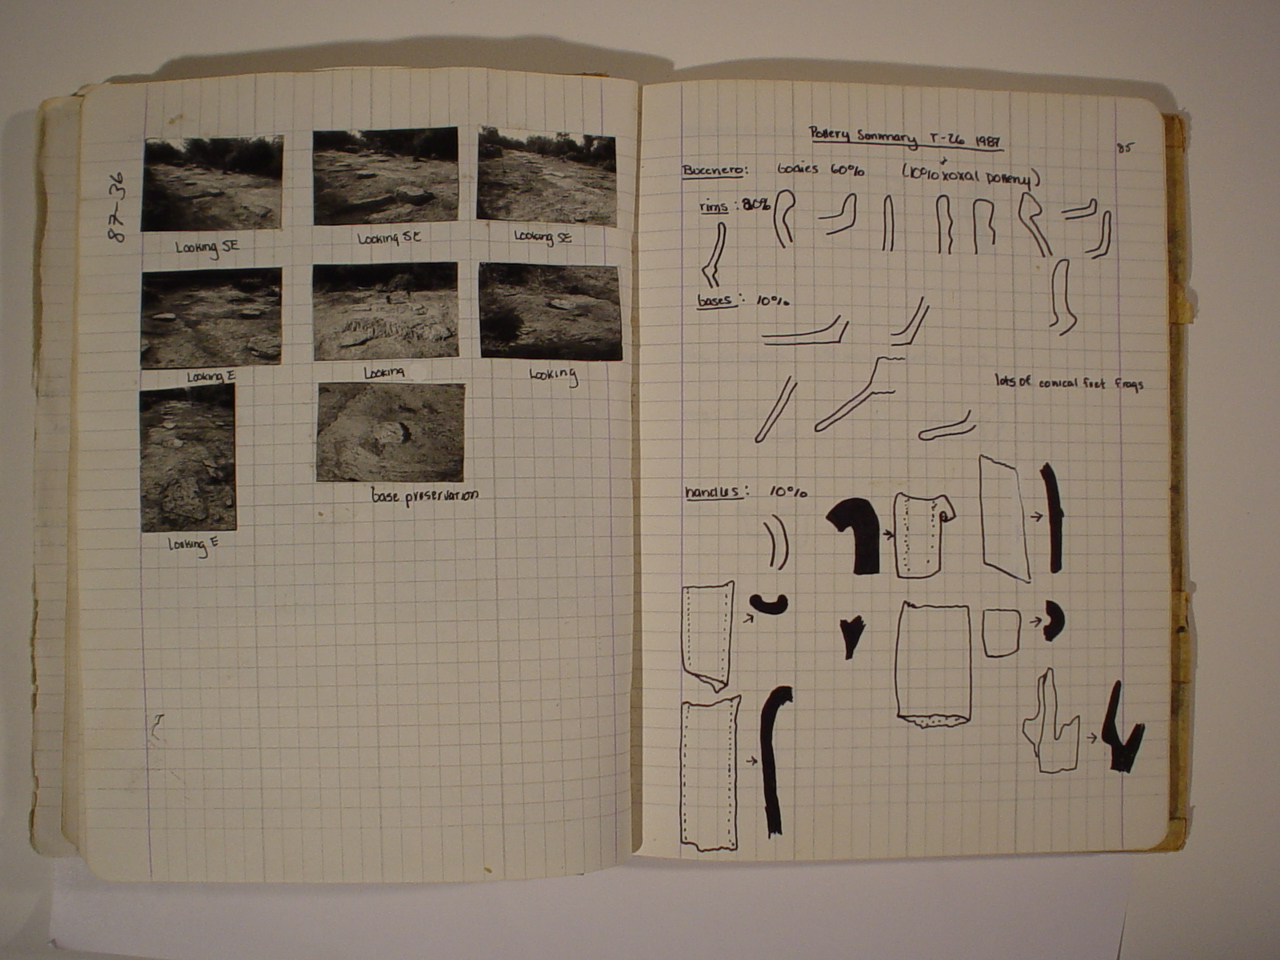 87-36
Looking SE
Looking SE
Looking SE
Looking E
Looking
Looking
base preservation
Looking E
Pottery Summary T-26 1987
85
Bucchero: bodies 60% (10% total pottery)
rims: 20%
bases: 10%
lots of conical feet frags
handles: 10%